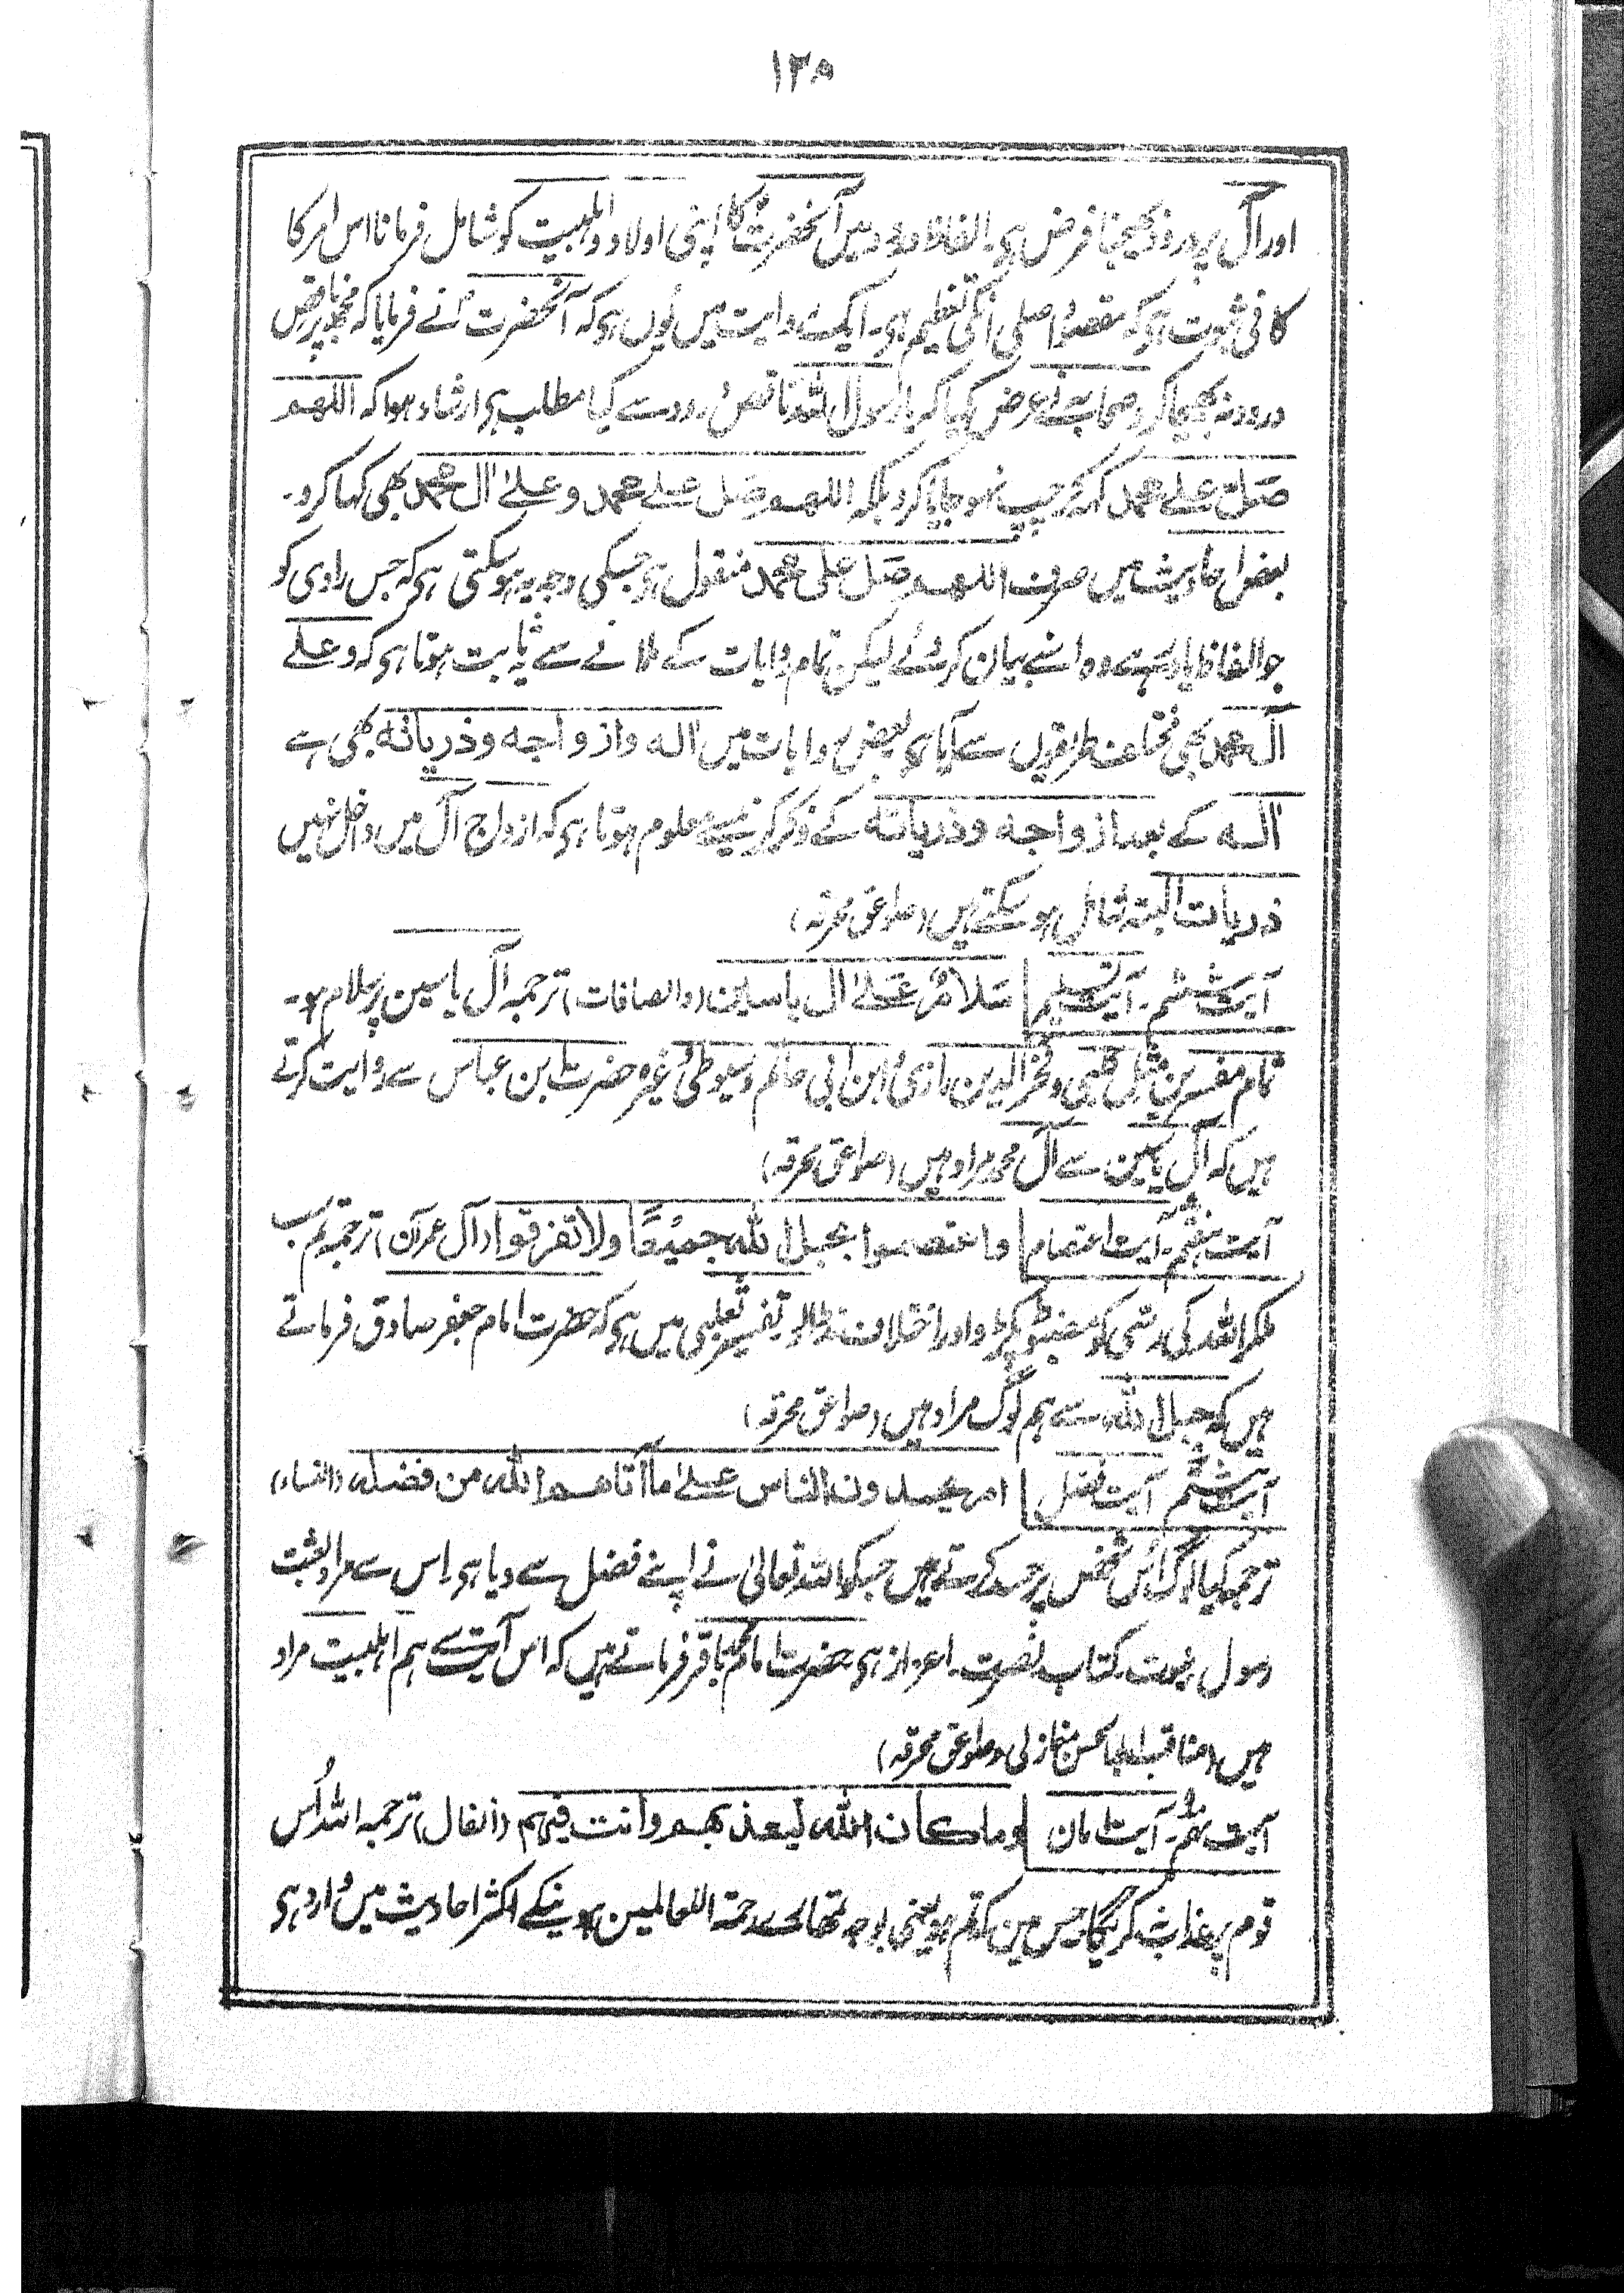 ۱۳۵
اور آل پر درود بھیجنا فرض ہی۔ الفاظ درود میں آنحضرتؐ کا اپنی اولاد و اہلبیت کو شامل فرمانا اس امر کا
کافی ثبوت ہی کہ مقصود اصلی انکی تعظیم ہی۔ ایک روایت میں یوں ہی کہ آنحضرتؐ نے فرمایا کہ مجھپر ناقص
درود نہ بھیجا کرو صحابہ نے عرض کیا کہ یا رسول اللہ ناقص درود سے کیا مطلب ہی ارشاد ہوا کہ اللھم
صل علے محمد کہکر چپ نہو جایا کرو بلکہ اللھم صل علے محمد و علےٰ اٰل محمد بھی کہا کرو۔
بعض احادیث میں صرف اللھم صل علی محمد منقول ہی جسکی وجہ یہ ہو سکتی ہی کہ جس راوی کو
جو الفاظ یاد رہے وہ اسنے بیان کر دئے لیکن تمام روایات کے ملانے سے یہ ثابت ہوتا ہی کہ و علے
آل محمد بھی مختلف طریقوں سے آیا ہی بعض روایات میں اٰلہ و ازواجہ و ذریاتہ بھی ہے
اٰلہ کے بعد ازواجہ و ذریاتہ کے ذکر کرنیسے معلوم ہوتا ہی کہ ازواج آل میں داخل نہیں
ذریات البتہ شامل ہو سکتے ہیں (صواعق محرقہ)
آیت ششم۔ آیت تسلیم سلام علےٰ اٰل یاسین (والصافات) ترجمہ آل یاسین پر سلام ہو۔
تمام مفسرین مثل ثعلبی و فخر الدین رازی و ابن ابی حاتم و سیوطی وغیرہ حضرت ابن عباس سے روایت کرتے
ہیں کہ آل یاسین سے آل محمد مراد ہیں (صواعق محرقہ)
آیت ہفتم۔ آیت اعتصام واعتصموا بحبل اللہ جمیعًا ولا تفرقوا (آل عمران) ترجمہ تم سب
ملکر اللہ کی رسی کو مضبوط پکڑو اور اختلاف نہ ڈالو تفسیر ثعلبی میں ہی کہ حضرت امام جعفر صادق فرماتے
ہیں کہ حبل اللہ سے ہم لوگ مراد ہیں (صواعق محرقہ)
آیت ہشتم آیت فضل ام یحسدون الناس علےٰ ما آتاھم اللہ من فضلہ (النساء)
ترجمہ کیا لوگ اُس شخص پر حسد کرتے ہیں جسکو اللہ تعالیٰ نے اپنے فضل سے دیا ہی۔ اس سے مراد بعثت
رسول نبوت۔ کتاب۔ نصرت۔ اعزاز ہی حضرت امام محمد باقر فرماتے ہیں کہ اس آیت سے ہم اہلبیت مراد
ہیں (مناقب ابو الحسن مغازلی و صواعق محرقہ)
آیت نہم۔ آیت امان وما کان اللہ لیعذبھم وانت فیھم (انفال) ترجمہ اللہ اُس
قوم پر عذاب نہ کریگا جس میں کہ تم ہو یعنی بوجہ تمھارے رحمۃ اللعالمین ہونیکے اکثر احادیث میں وارد ہی